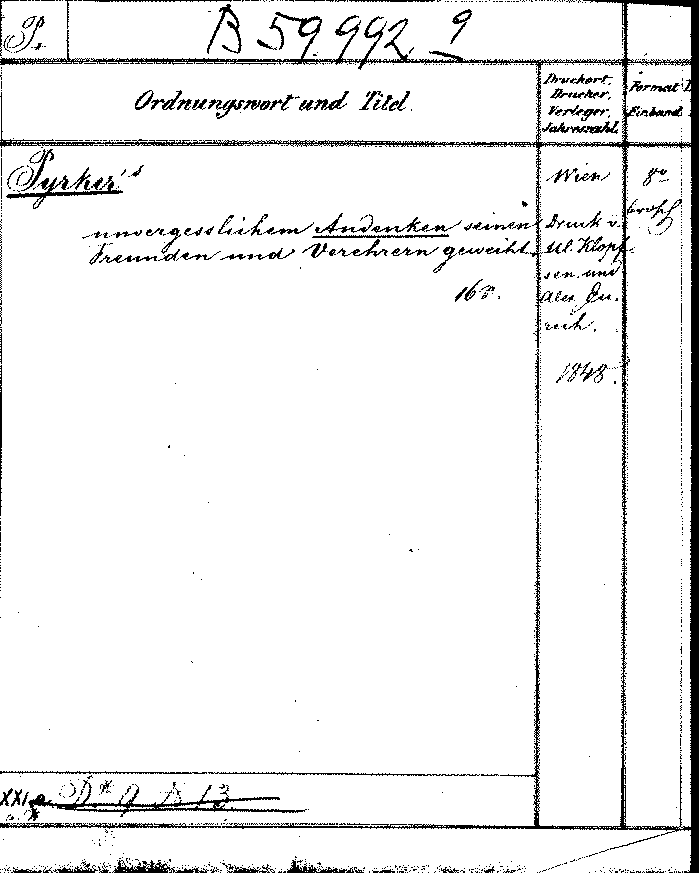 P.
B 59.992 9
Ordnungswort und Titel.
Druckort,
Drucker,
Verleger,
Jahreszahl.
Format
Einband
Pyrker's
unvergesslichem Andenken seinen
Freunden und Verehrern geweiht.
16 S.
Wien
Druck v.
Ul. Klopf
sen. und
Alex. Eu-
rich.
1848.
8o
brosch
XXI